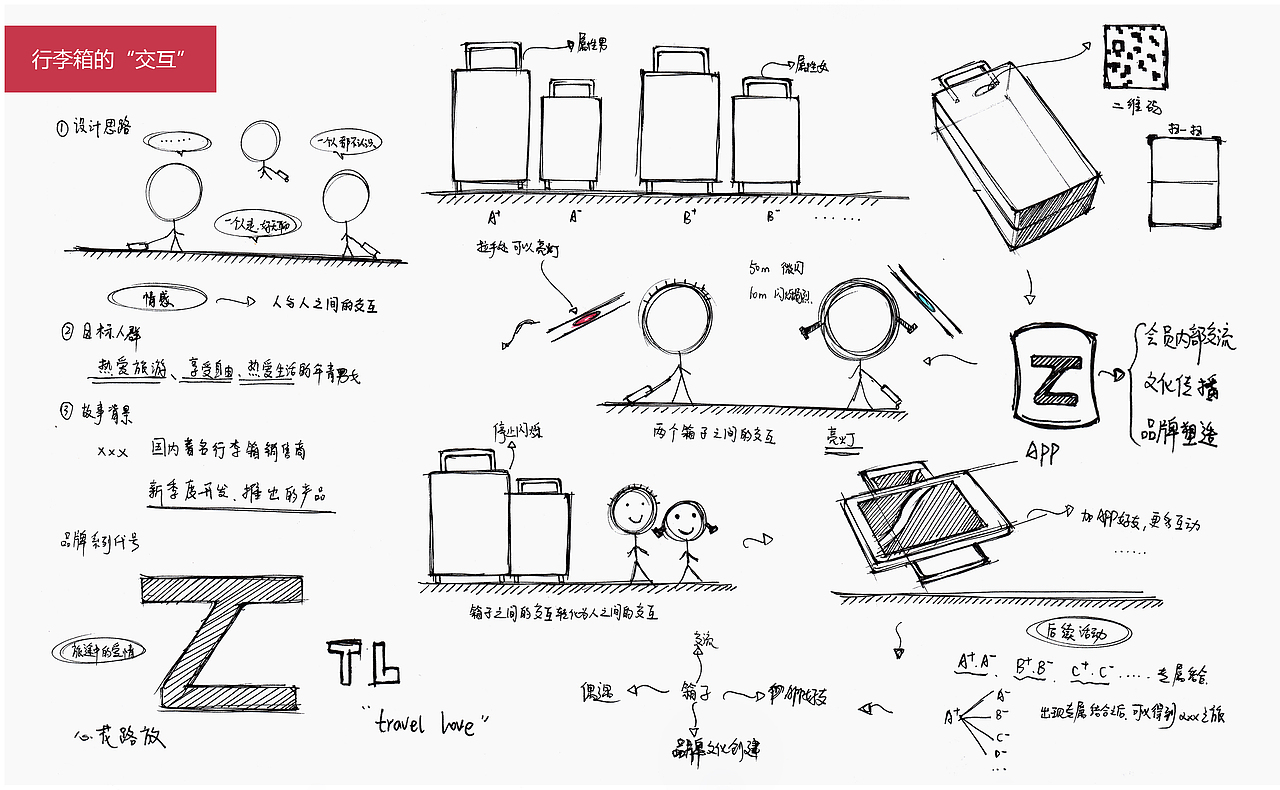 行李箱的“交互”
①设计思路
……
一个人都不认识
一个人走,好无聊
情感
人与人之间的交互
②目标人群
热爱旅游、享受自由、热爱生活的年青男女
③故事背景
xxx 国内著名行李箱销售商
新季度开发、推出的产品
品牌系列代号
旅途中的爱情
Z
TL
“travel love”
心花路放
属性男
属性女
A⁺
A⁻
B⁺
B⁻
……
拉手处可以亮灯
50m 微闪
10m 闪烁强烈
两个箱子之间的交互
亮灯
二维码
扫一扫
Z
APP
会员内部交流
文化传播
品牌塑造
停止闪烁
箱子之间的交互转化为人之间的交互
加APP好友,更多互动
……
后续活动
A⁺.A⁻ B⁺.B⁻ C⁺.C⁻ …… 专属结合
A⁺
A⁻
B⁻
C⁻
D⁻
…
出现专属结合之后,可以得到xxx之旅
交流
偶遇
箱子
品牌文化创建